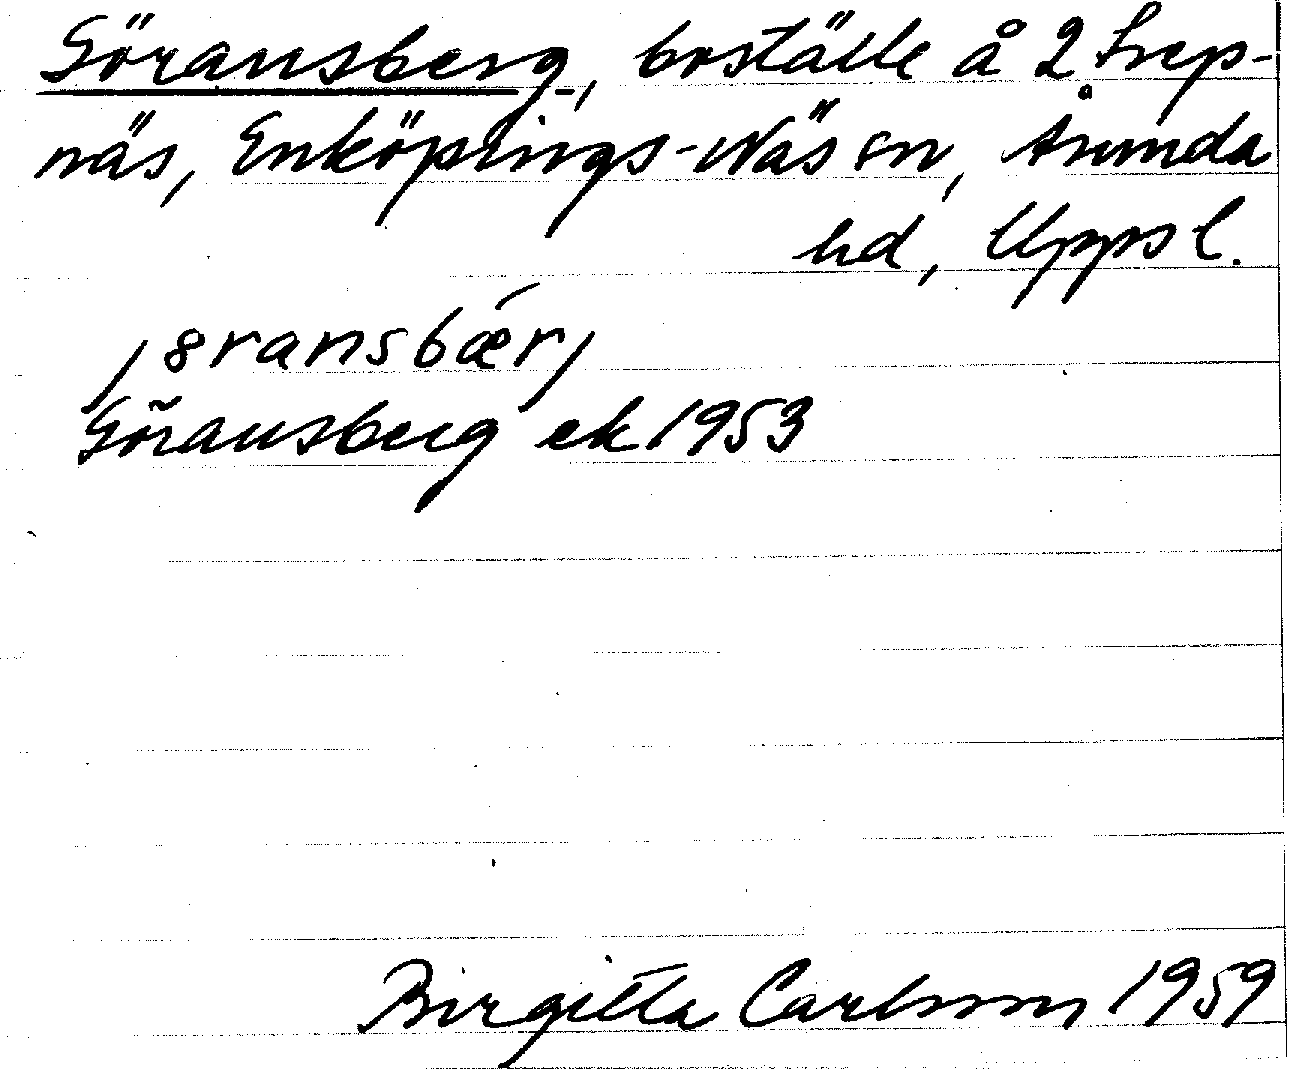 Göransberg, boställe å 2 Svep-
näs, Enköpings-Näs sn, Åsunda
hd, Uppsl.
Göransberg ek 1953
Birgitta Carlsson 1959